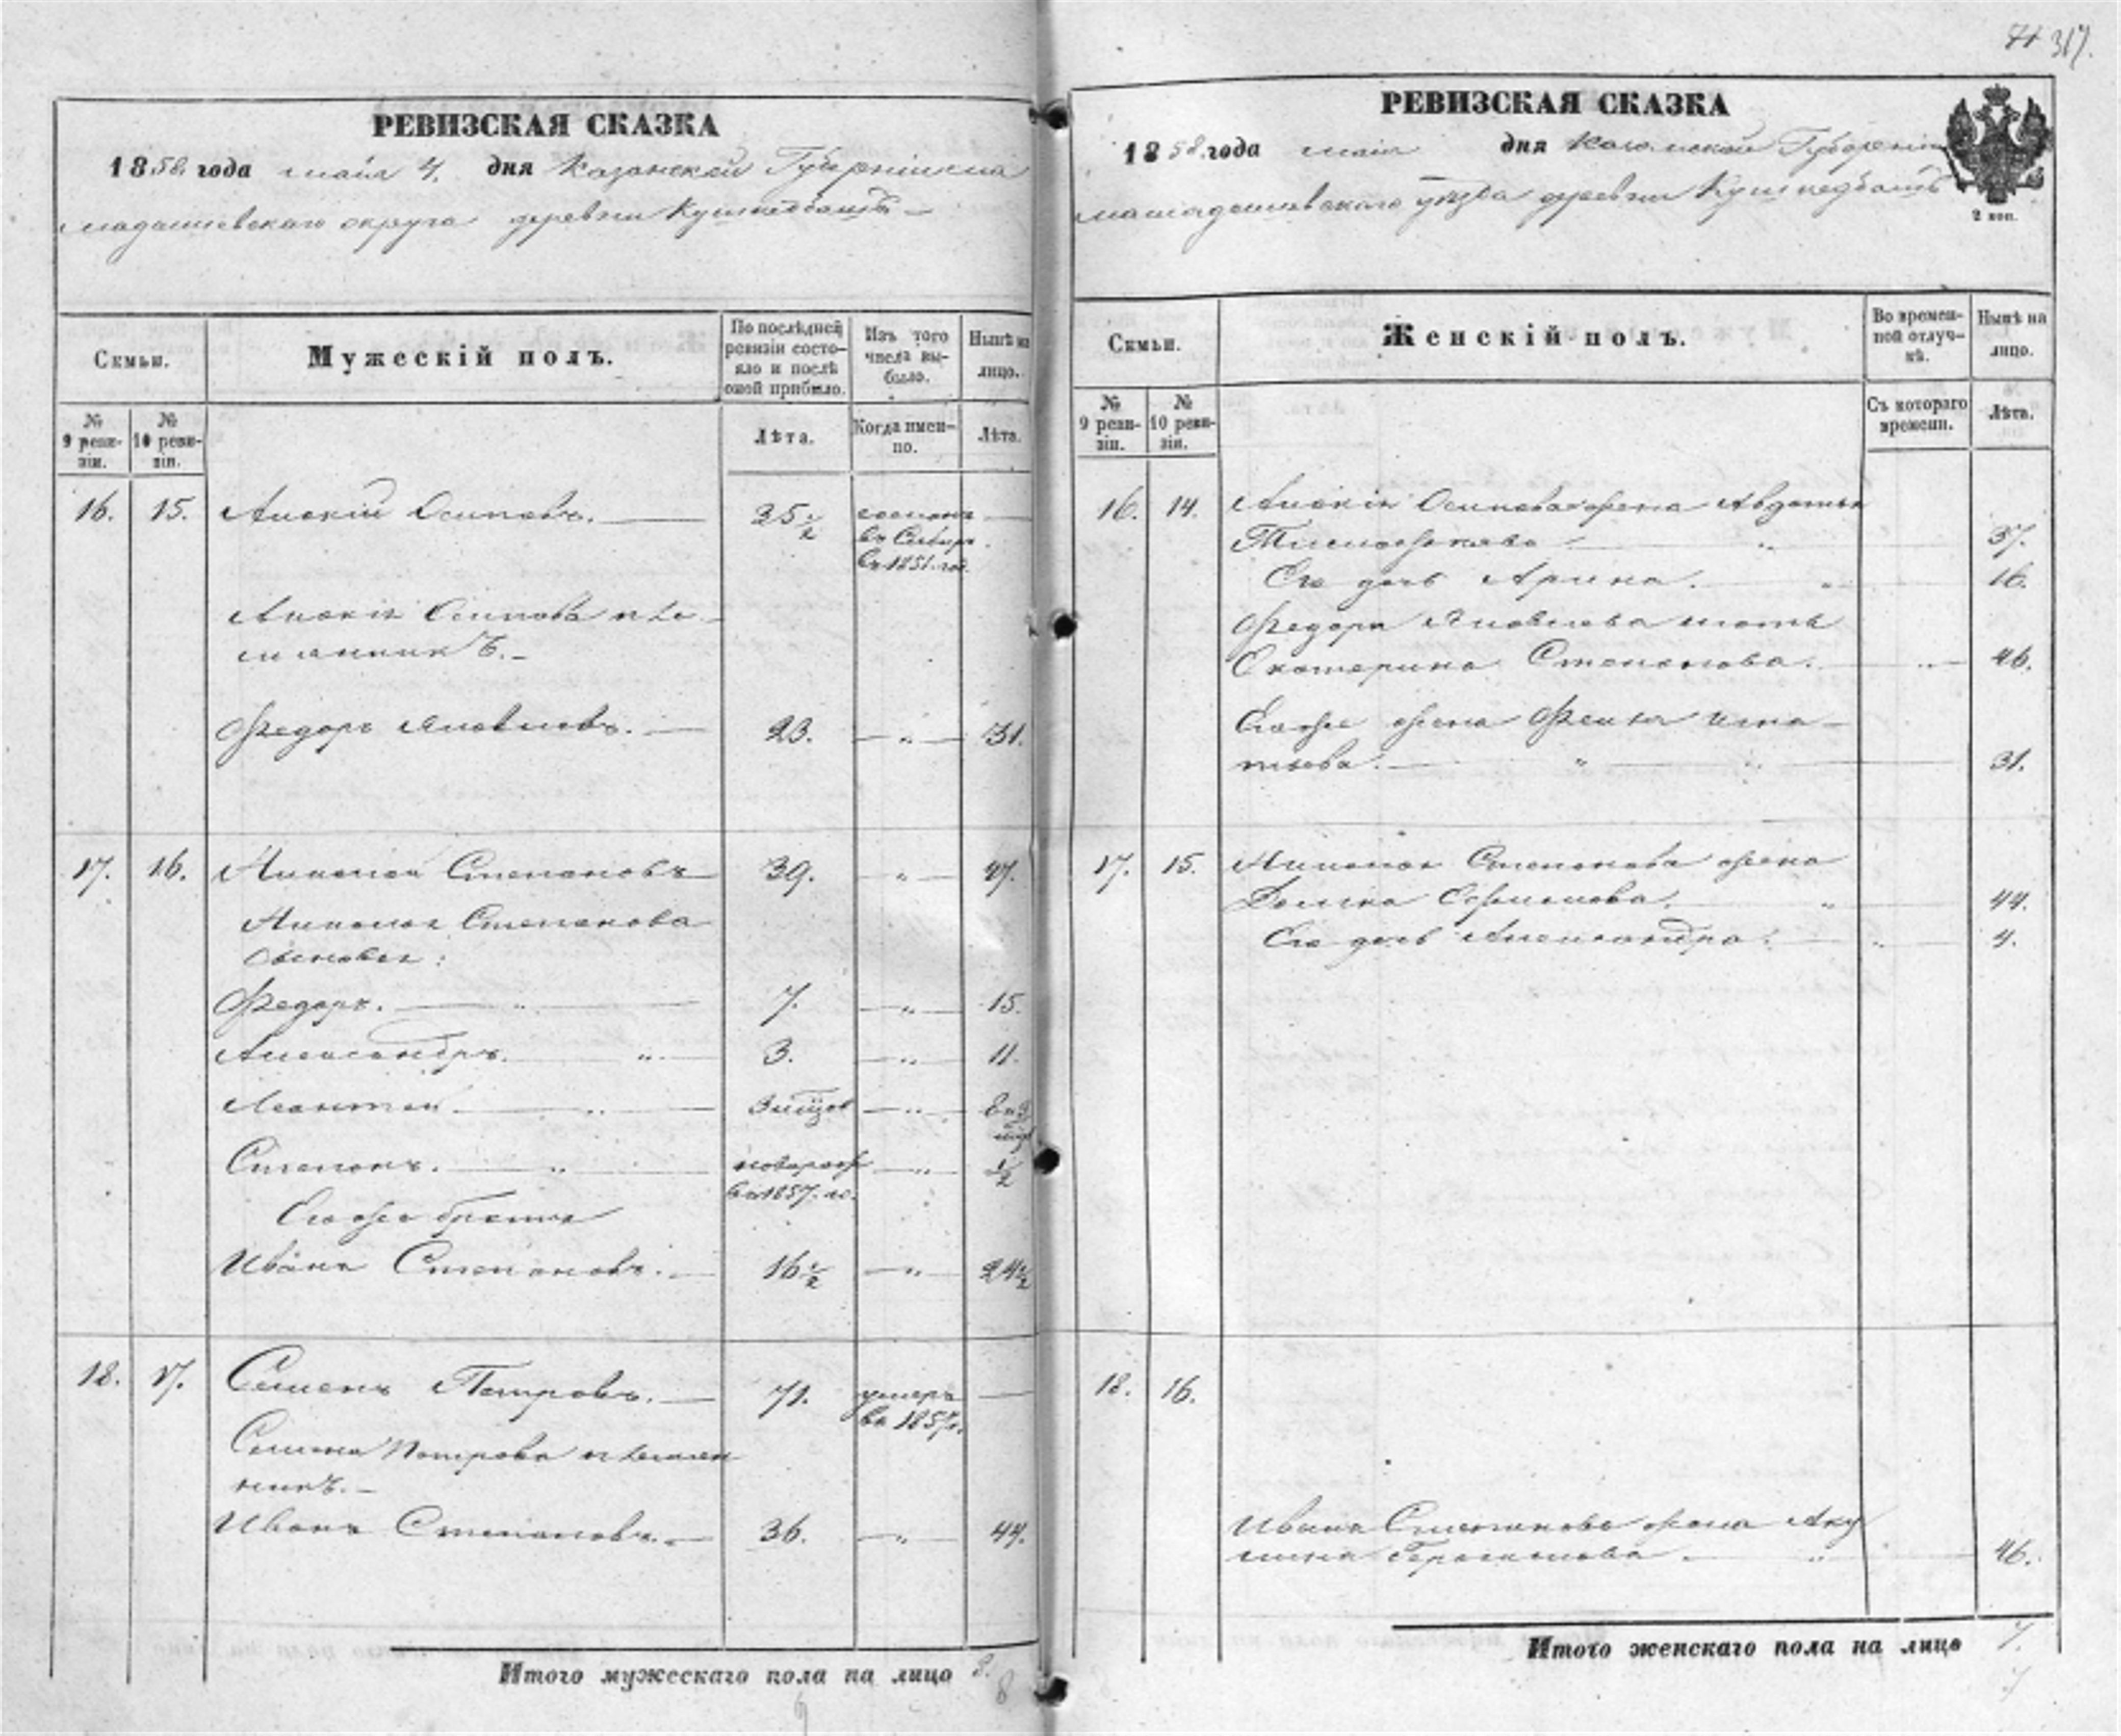 317.
РЕВИЗСКАЯ СКАЗКА
1858 года маія 4. дня Казанской Губерніи
округа деревни
Семьи.
Мужескій полъ.
По послѣдней ревизіи состояло и послѣ оной прибыло.
Изъ того числа выбыло.
Нынѣ на лицо.
№ 9 ревизіи.
№ 10 ревизіи.
Лѣта.
Когда именно.
Лѣта.
16. 15. Осиповъ. 25 1/2 сосланъ
въ Сибирь
въ 1851 год.
Осипова пле-
мянникъ.
Федоръ Яковлевъ. 23. — " — 31.
17. 16. Николай Степановъ 39. — " — 47.
Николая Степанова
сыновья:
Федоръ. — " — 7. — " — 15.
Александръ. " 3. — " — 11.
Леонтей. — " — — " —
Степанъ. — " — — " — 1/2
въ 1857. го.
Его же братъ
Иванъ Степановъ. 16 1/2 — " — 24 1/2
18. 17. Семенъ Петровъ. 71. умеръ —
въ 1857 г.
Семена Петрова племян
никъ.
Иванъ Степановъ. 36. — " — 44.
Итого мужескаго пола на лицо 8.
8
РЕВИЗСКАЯ СКАЗКА
1858 года маія дня Казанской Губерніи
уѣзда деревни
2 коп.
Семьи.
Женскій полъ.
Во временной отлучкѣ.
Нынѣ на лицо.
№ 9 ревизіи.
№ 10 ревизіи.
Съ котораго времени.
Лѣта.
16. 14. Осипова жена Авдотья
Тимофеева " 37.
Его дочь Арина. " 16.
Федора Яковлева мать
Екатерина Степанова. " 46.
Его же жена Игна-
тьева. " 31.
17. 15. Николая Степанова жена
" 44.
Его дочь Александра. " 4.
18. 16.
Ивана Степанова жена Аку
лина Герасимова. " 46.
Итого женскаго пола на лицо 7.
7